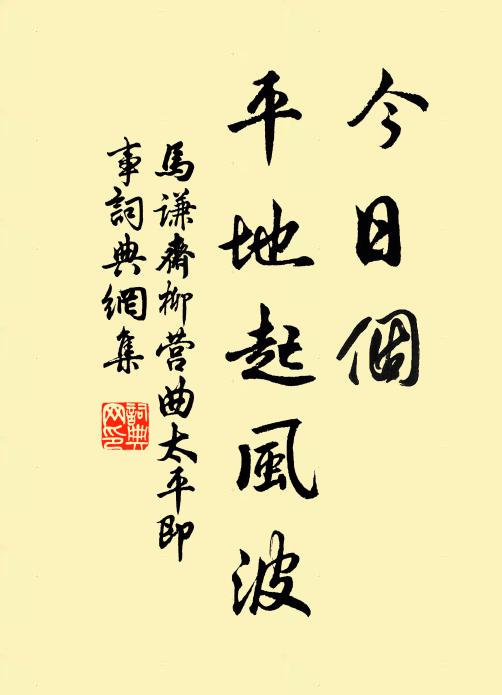 今日個
平地起風波
馬謙齋柳营曲太平即
事詞典網集
詞典
网印